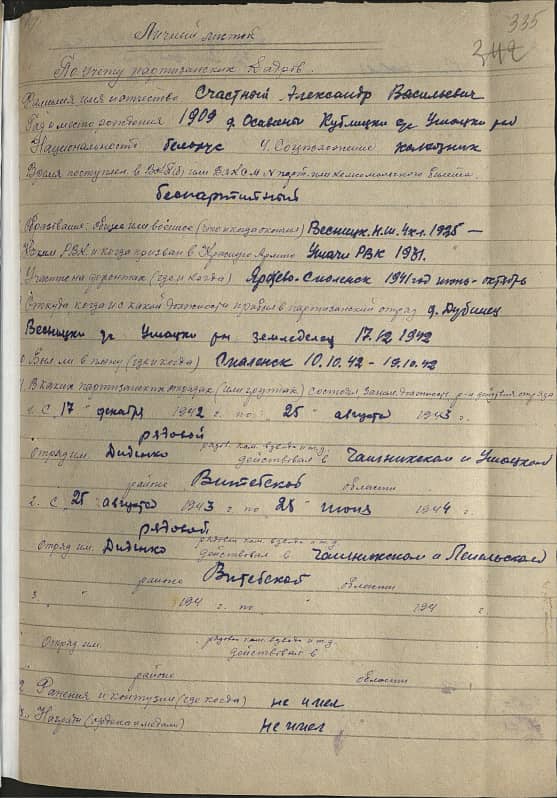 335
342
Личный листок
По учету партизанских кадров.
Фамилия имя и отчество Счастный Александр Васильевич
Год и место рождения 1909 д. Кублицки с/с Ушацки р-н
Национальность белорус 4. Соцположение колхозник
Время поступлен. в ВКП(б) или ВЛКСМ N парт. или комсомольского билета.
беспартийный
Образования: общее или военное (что и когда окончил) Весницк. Н.Ш. 4 кл. 1925 —
Каким РВК и когда призван в Красную Армию Ушачи РВК 1931.
Участие на фронтах (где и когда) Смоленск 1941 год июнь-октябрь
Откуда когда и с какой должности прибыл в партизанский отряд д. Дубинец
Весницки с/с Ушацки р-н. земледелец 17.12 1942
Был ли в плену (где и когда) Смоленск 10.10.42 - 19.10.42
В каких партизанских отрядах (или группах) состоял занам. должность р-н действия отряда
1. С 17 " декабря 1942 г. по " 25 " августа 1943 г.
рядовой
Отряд им. Диденко рядов. ком. взвода и т.д.
действовал в Чашникском и Ушацком
районе Витебской области
2. С 25 " августа 1943 г. по 28 " июня 1944 г.
рядовой
Отряд им. Диденко рядовых ком. взвода и т.д.
действовал в Чашникском и Лепельском
районе Витебской области
3. " " 194 г. по " 194 г.
Отряд им. рядовых ком. взвода и т.д.
действовал в
районе области
2 Ранения и контузии (где когда) не имел
3.. Награды (ордена и медали) не имел